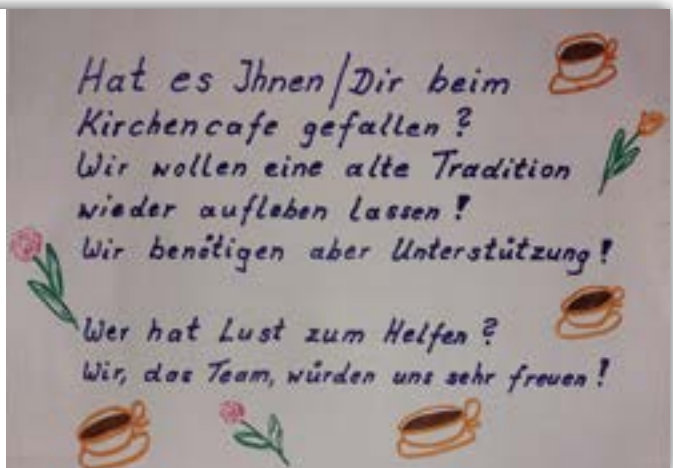 Hat es Ihnen/Dir beim
Kirchencafe gefallen?
Wir wollen eine alte Tradition
wieder aufleben lassen!
Wir benötigen aber Unterstützung!
Wer hat Lust zum Helfen?
Wir, das Team, würden uns sehr freuen!